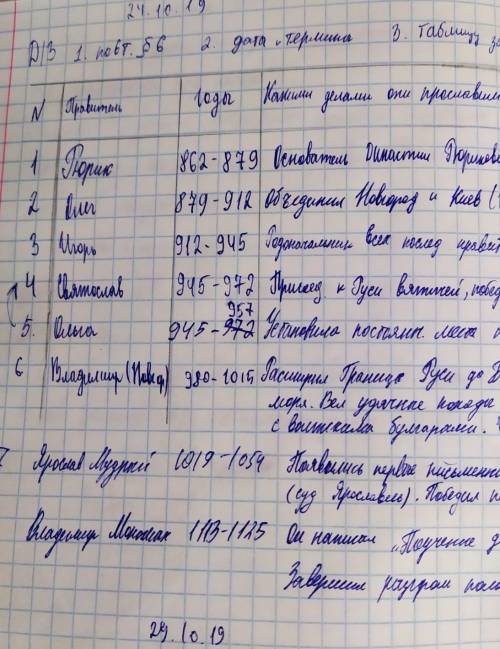 24.10.19
Д/З 1. повт. §6 2. дата, термина 3. Таблицу за
N Правитель Годы Какими делами они прославили
1 Рюрик 862-879 Основатель Династии Рюрикови
2 Олег 879-912 Объединил Новгород и Киев (
3 Игорь 912-945 Родоначальник всех послед правит
4 Святослав 945-972 Присоед. к Руси вятичей, побед
957
5. Ольга 945-972 Установила постоянн. места
6 Владимир (Новгор) 980-1015 Расширил Границы Руси до
моря. Вел удачные походы
с волжскими булгарами.
7 Ярослав Мудрый 1019-1054 Появились первые письменн
(суд Ярославль). Победил п
Владимир Мономах 1113-1125 Он написал „Поучение д
Завершил разгром поло
29.10.19